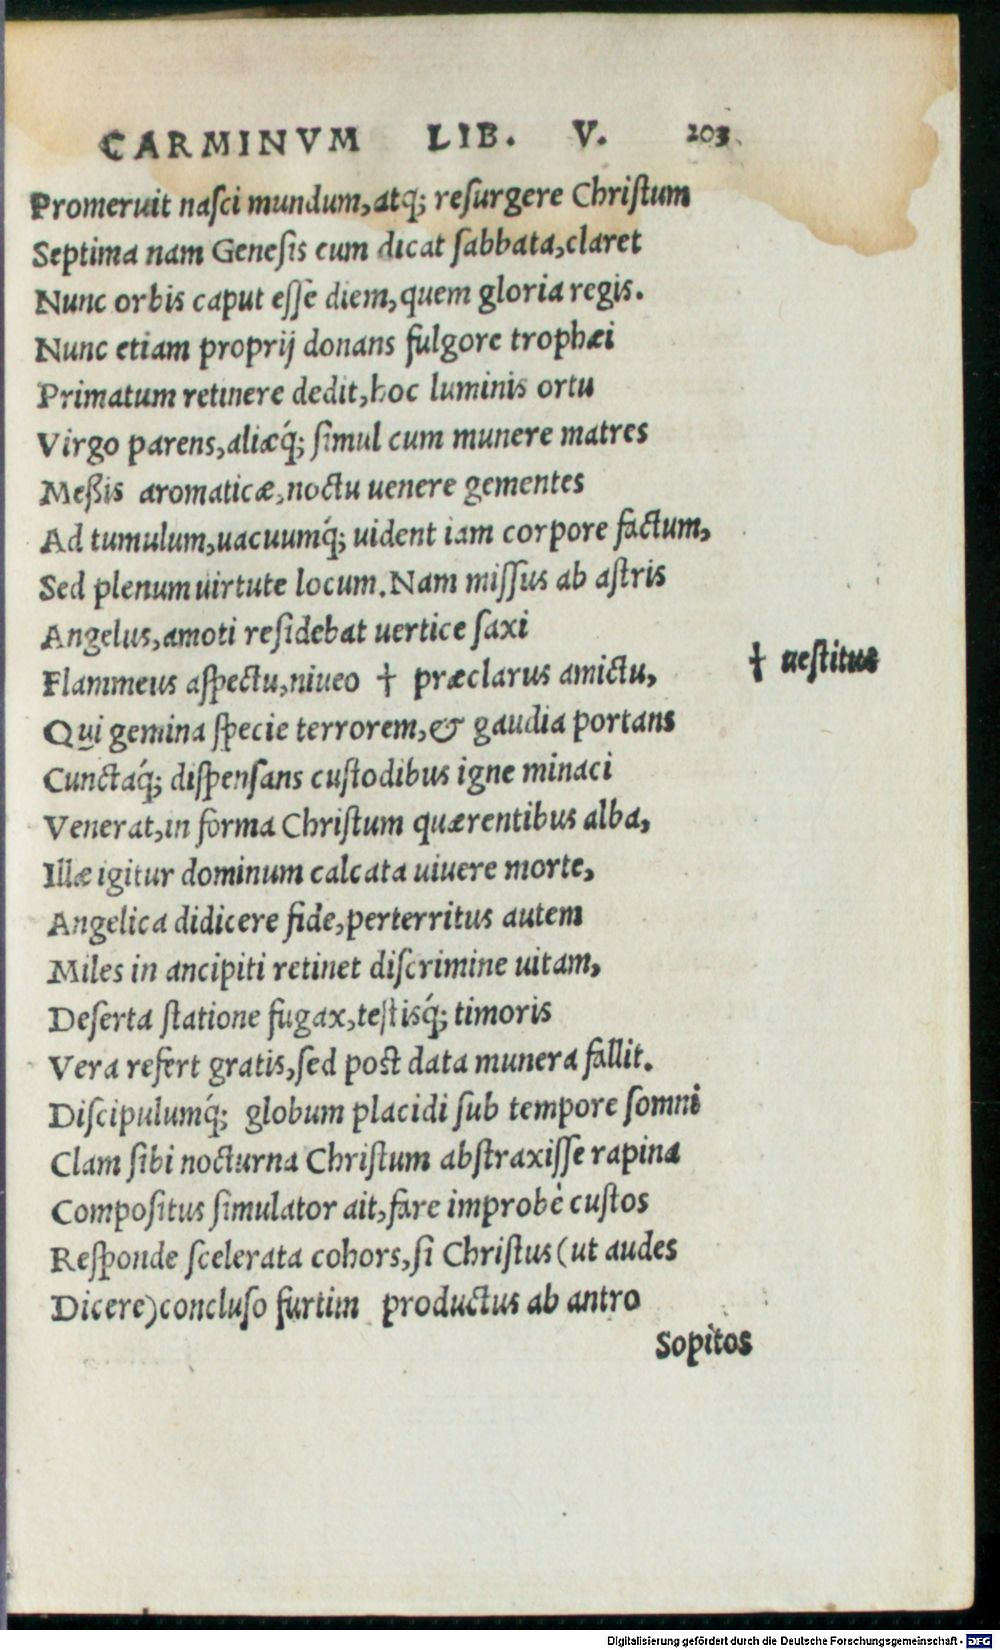 CARMINVM LIB. V. 203
Promeruit nasci mundum, atq; resurgere Christum
Septima nam Genesis cum dicat sabbata, claret
Nunc orbis caput esse diem, quem gloria regis.
Nunc etiam proprij donans fulgore trophæi
Primatum retinere dedit, hoc luminis ortu
Virgo parens, aliæq́; simul cum munere matres
Meßis aromaticæ, noctu uenere gementes
Ad tumulum, uacuumq́; uident iam corpore factum,
Sed plenum uirtute locum. Nam missus ab astris
Angelus, amoti residebat uertice saxi
Flammeus aspectu, niueo † præclarus amictu,
† uestitus
Qui gemina specie terrorem, & gaudia portans
Cunctaq́; dispensans custodibus igne minaci
Venerat, in forma Christum quærentibus alba,
Illæ igitur dominum calcata uiuere morte,
Angelica didicere fide, perterritus autem
Miles in ancipiti retinet discrimine uitam,
Deserta statione fugax, testisq́; timoris
Vera refert gratis, sed post data munera fallit.
Discipulumq́; globum placidi sub tempore somni
Clam sibi nocturna Christum abstraxisse rapina
Compositus simulator ait, fare improbè custos
Responde scelerata cohors, si Christus (ut audes
Dicere) concluso furtim productus ab antro
Sopitos
Digitalisierung gefördert durch die Deutsche Forschungsgemeinschaft - DFG